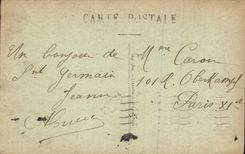 CARTE POSTALE
Un bonjour de
St Germain
Jeanne
Mme Caron
101 R. Oberkampf
Paris XIe